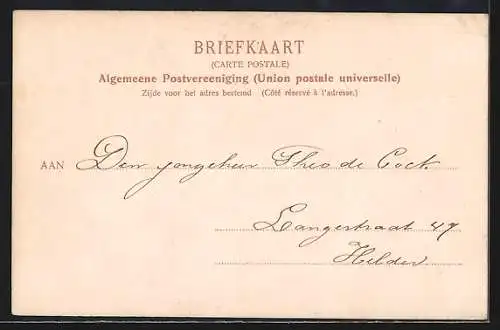 BRIEFKAART
(CARTE POSTALE)
Algemeene Postvereeniging (Union postale universelle)
Zijde voor het adres bestemd (Côté réservé à l'adresse.)
AAN Den jongeheer Theo de Cock.
Langestraat 47
Helder.